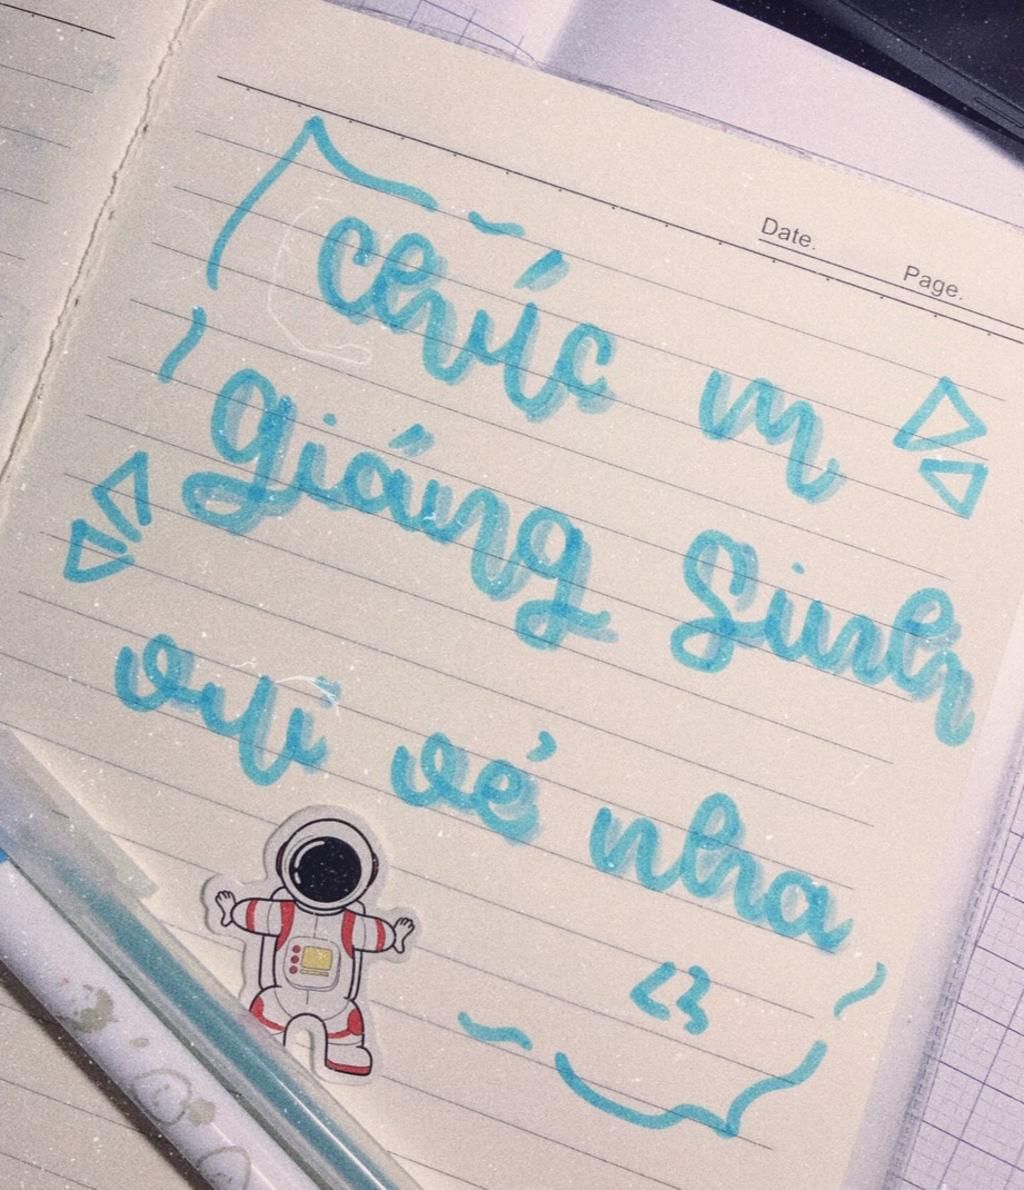 Date.
Page.
chúc m
giáng Sinh
vui vẻ nha
<3